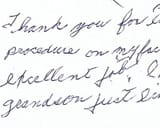 Thank you for
procedure on my fac
excellent job,
grandson just